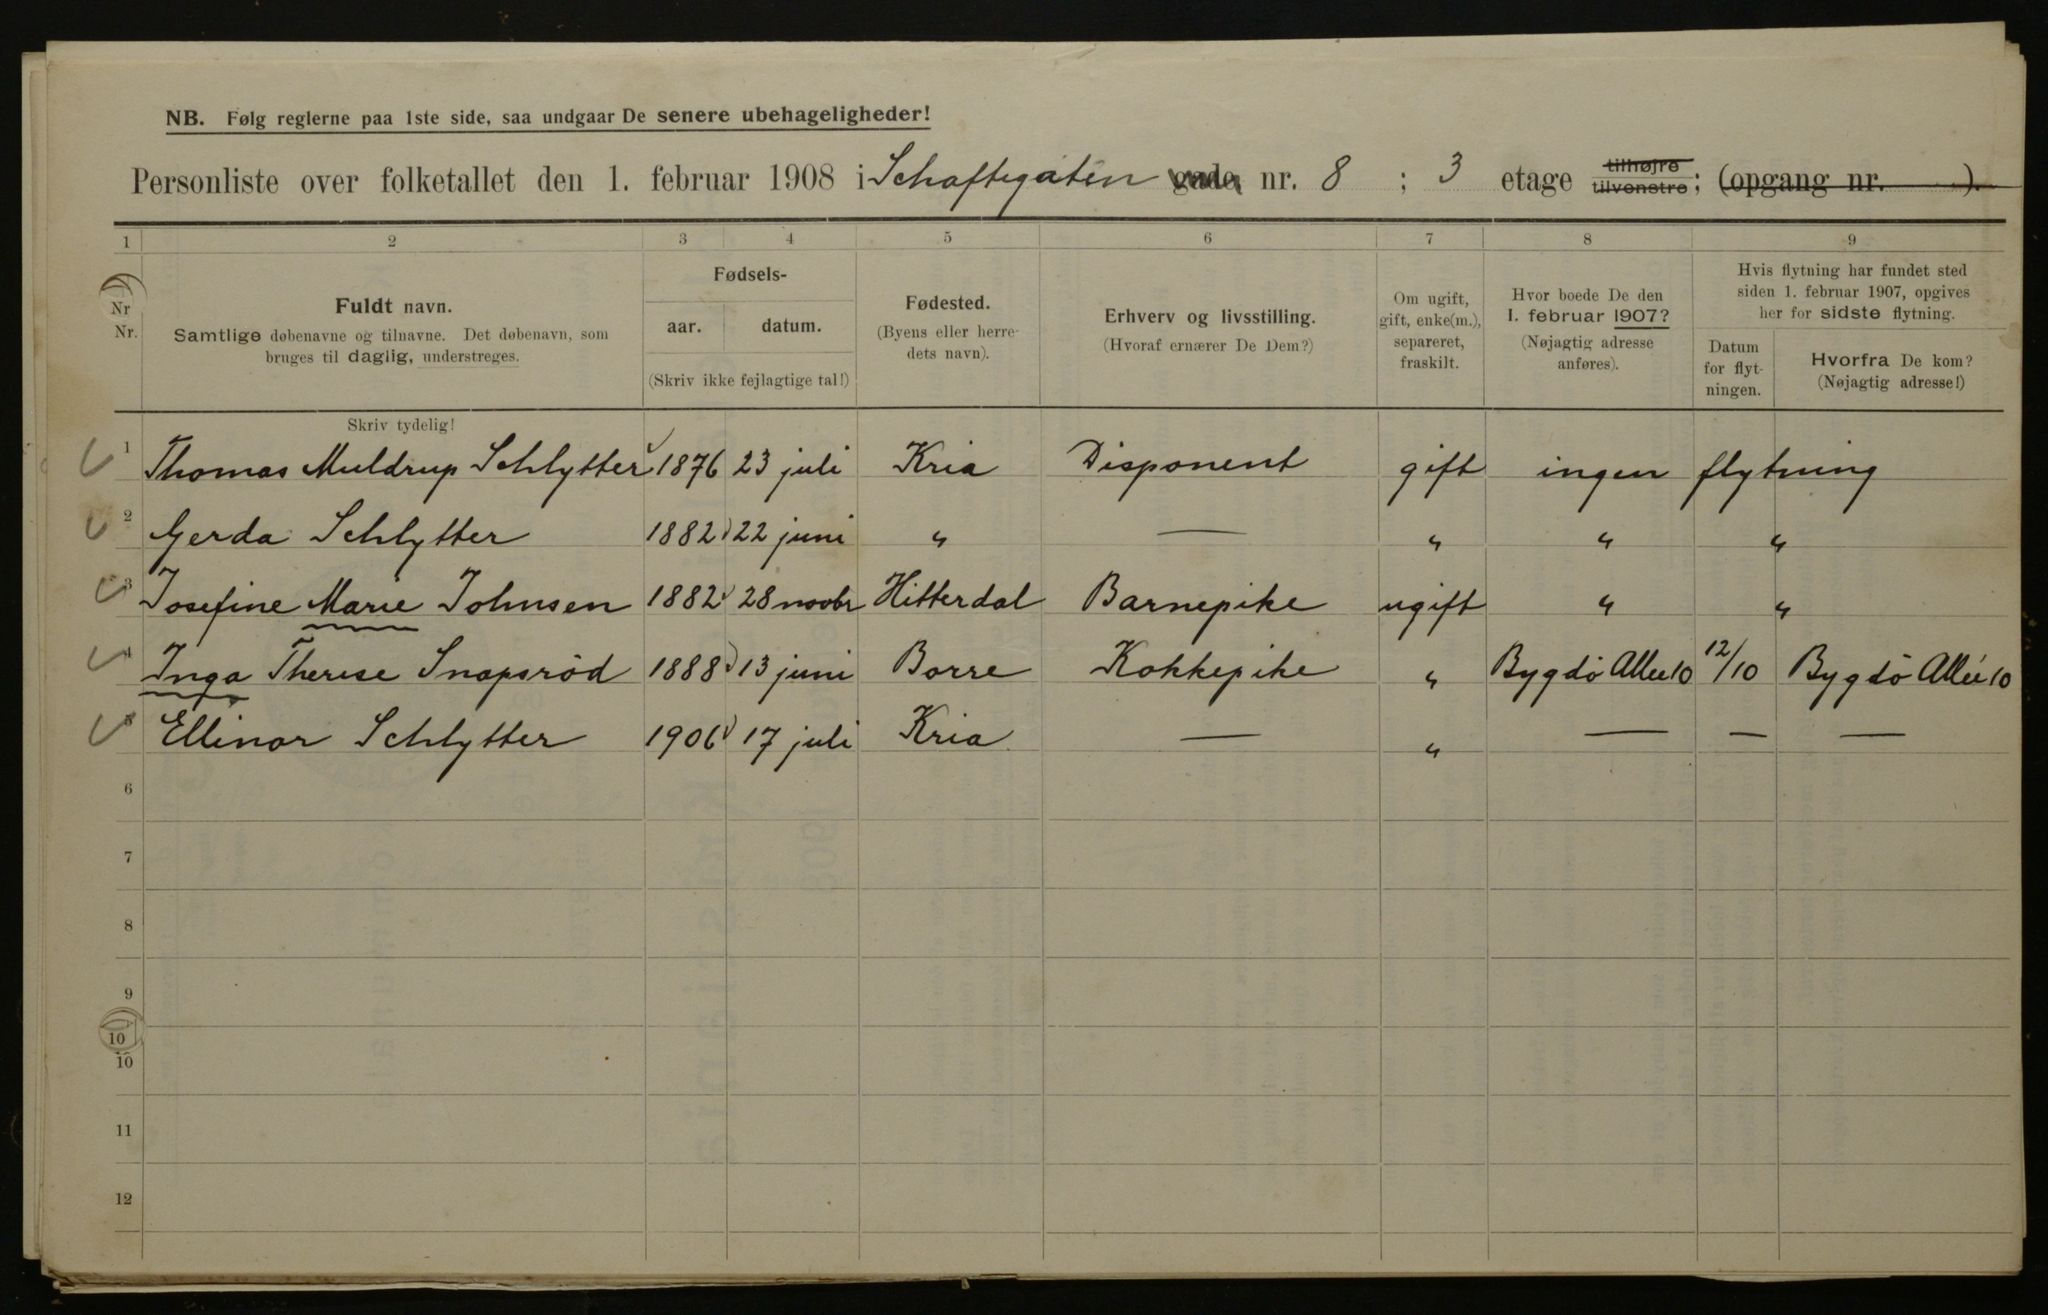 NB. Følg reglerne paa 1ste side, saa undgaar De senere ubehageligheder!
Personliste over folketallet den 1. februar 1908 i Schaftegaten gade nr. 8 ; 3 etage tilhøjre tilvenstre; (opgang nr. ).
1 2 3 4 5 6 7 8 9
Nr
Nr.
Fuldt navn.
Samtlige døbenavne og tilnavne. Det døbenavn, som
bruges til daglig, understreges.
Fødsels-
aar. datum.
(Skriv ikke fejlagtige tal!)
Fødested.
(Byens eller herre-
dets navn).
Erhverv og livsstilling.
(Hvoraf ernærer De Dem?)
Om ugift,
gift, enke(m.),
separeret,
fraskilt.
Hvor boede De den
1. februar 1907?
(Nøjagtig adresse
anføres).
Hvis flytning har fundet sted
siden 1. februar 1907, opgives
her for sidste flytning.
Datum
for flyt-
ningen.
Hvorfra De kom?
(Nøjagtig adresse!)
Skriv tydelig!
1 Thomas Muldrup Schlytter 1876 23 juli Kria Disponent gift ingen flytning
2 Gerda Schlytter 1882 22 juni " — " " "
3 Josefine Marie Johnsen 1882 28 novbr Hitterdal Barnepike ugift " "
4 Inga Therese Snapsröd 1888 13 juni Borre Kokkepike " Bygdö Allee 10 12/10 Bygdö Allée 10
5 Ellinor Schlytter 1906 17 juli Kria — " — — —
6
7
8
9
10
10
11
12